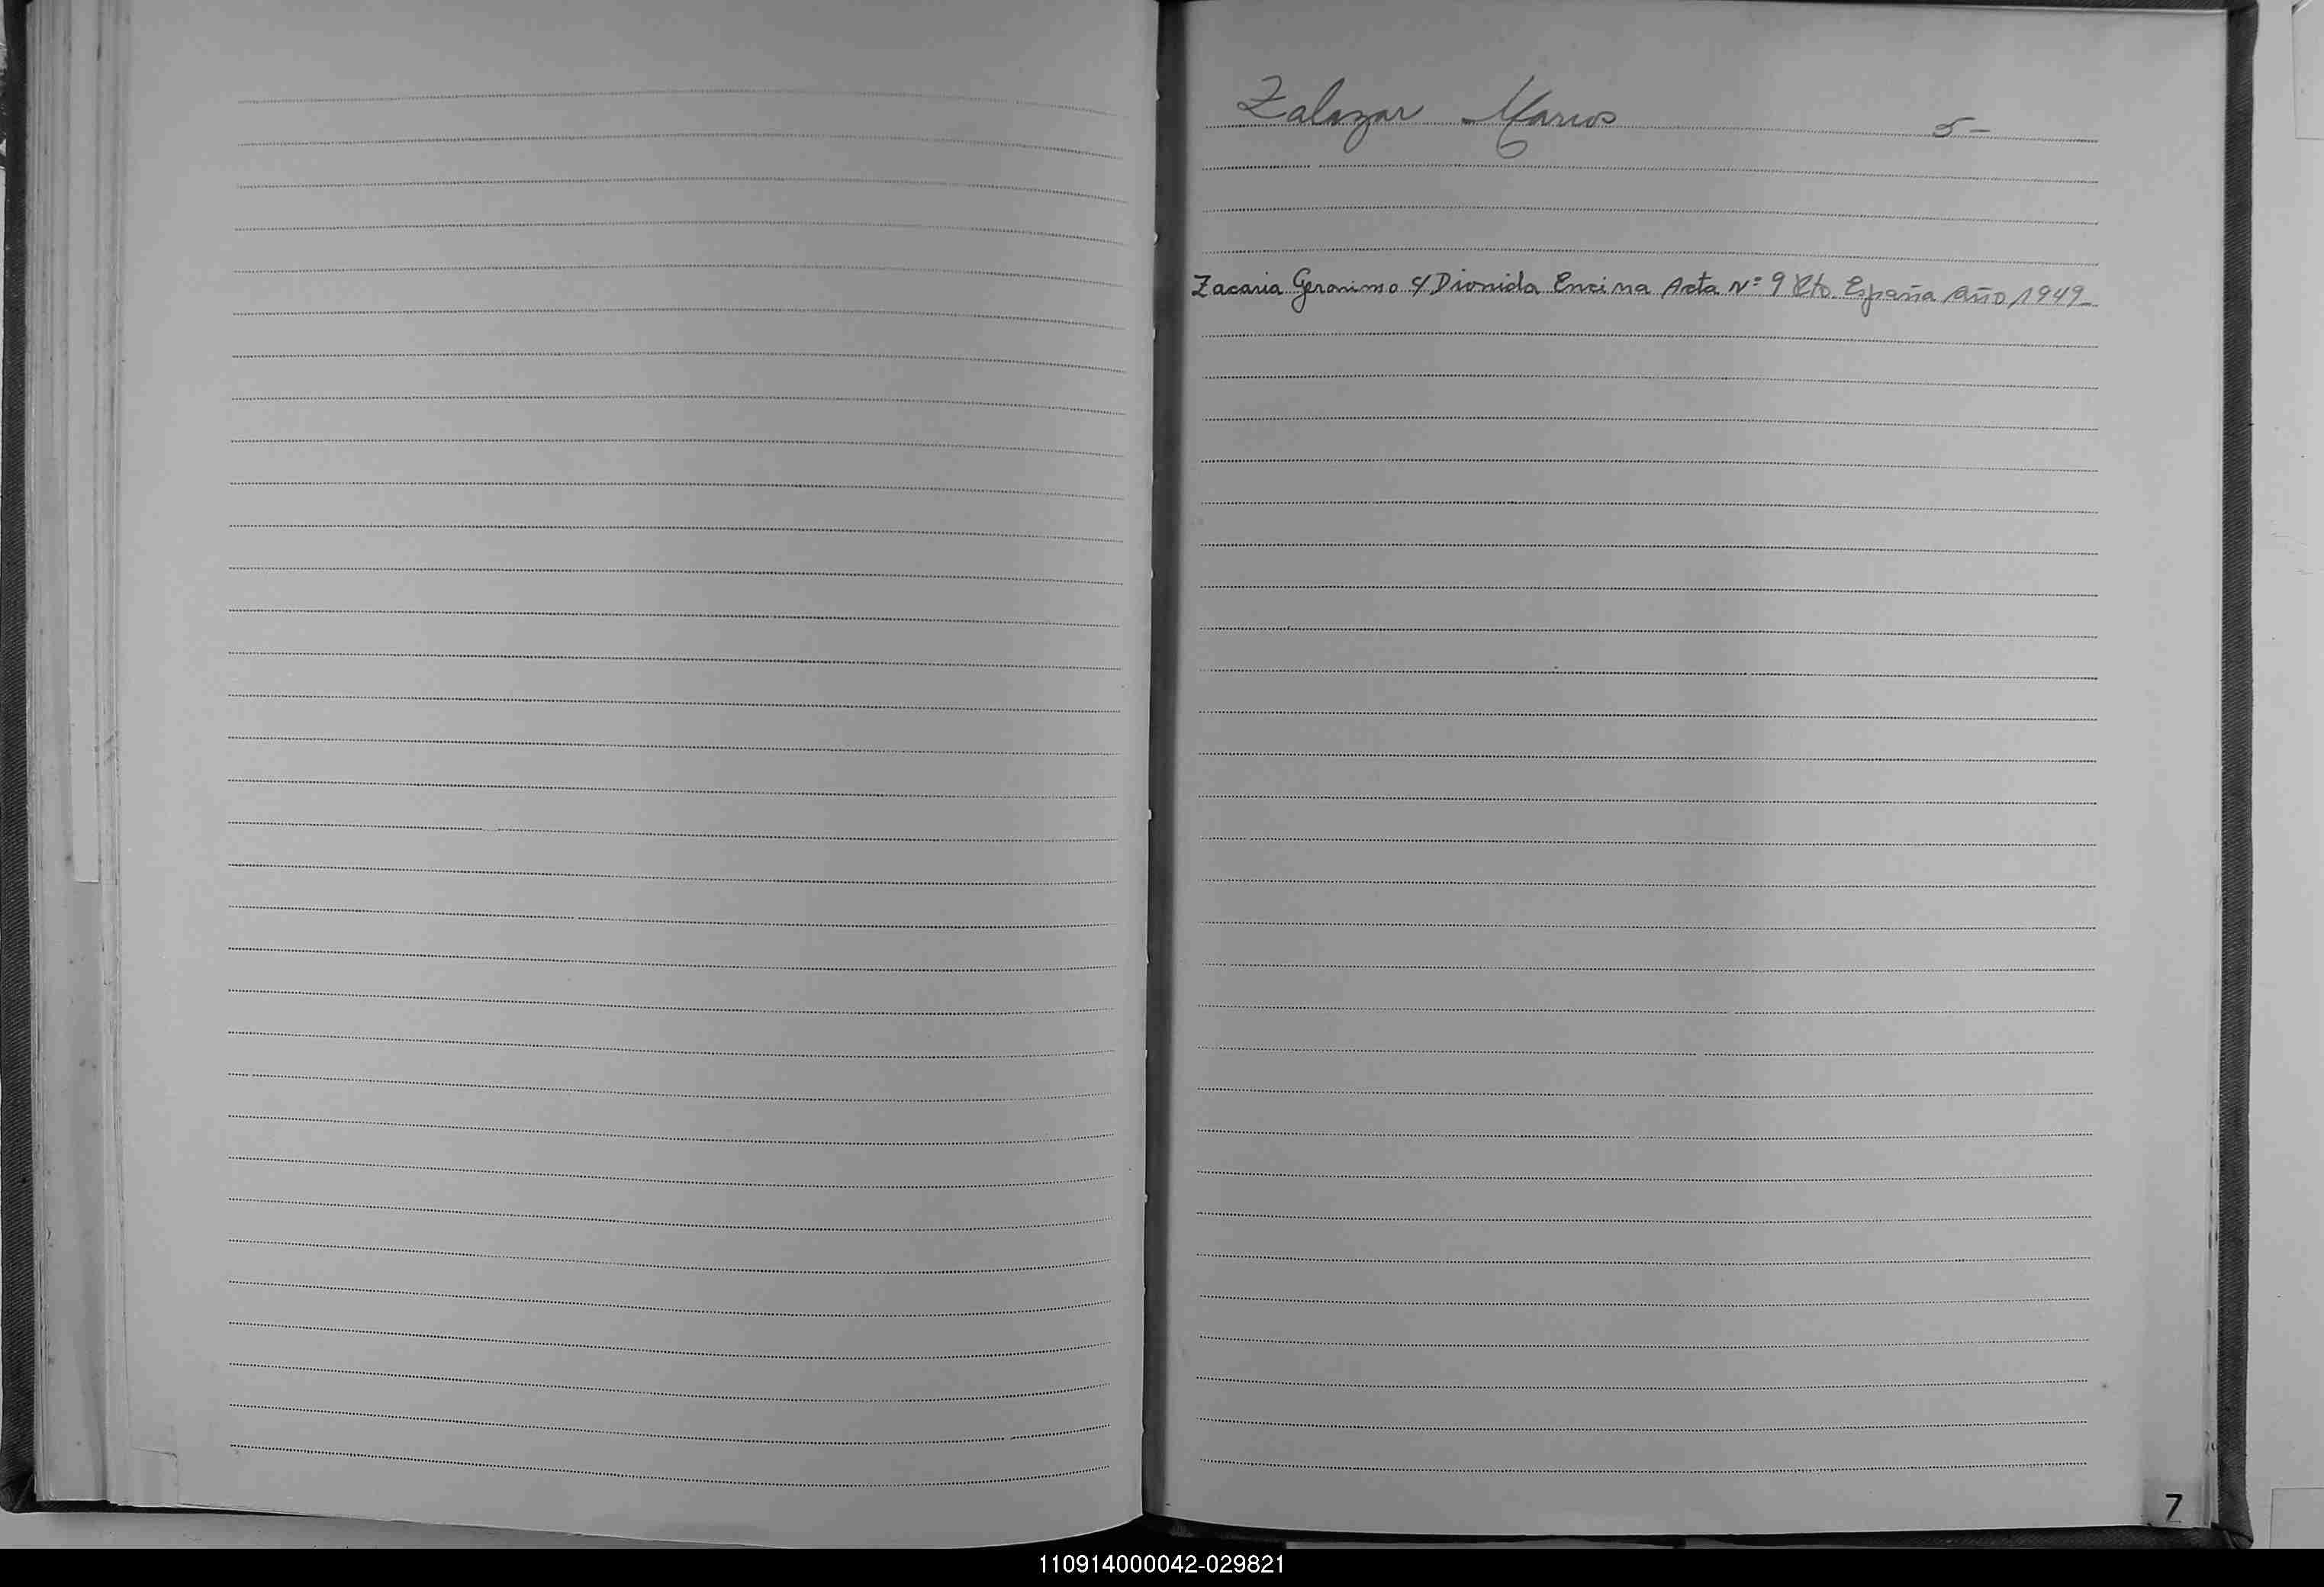 Zalazar Marcos 5-
Zacaria Geronimo c/ Dionida Encina Acta Nº 9 Rto. España Año 1949-
Z
110914000042-029821